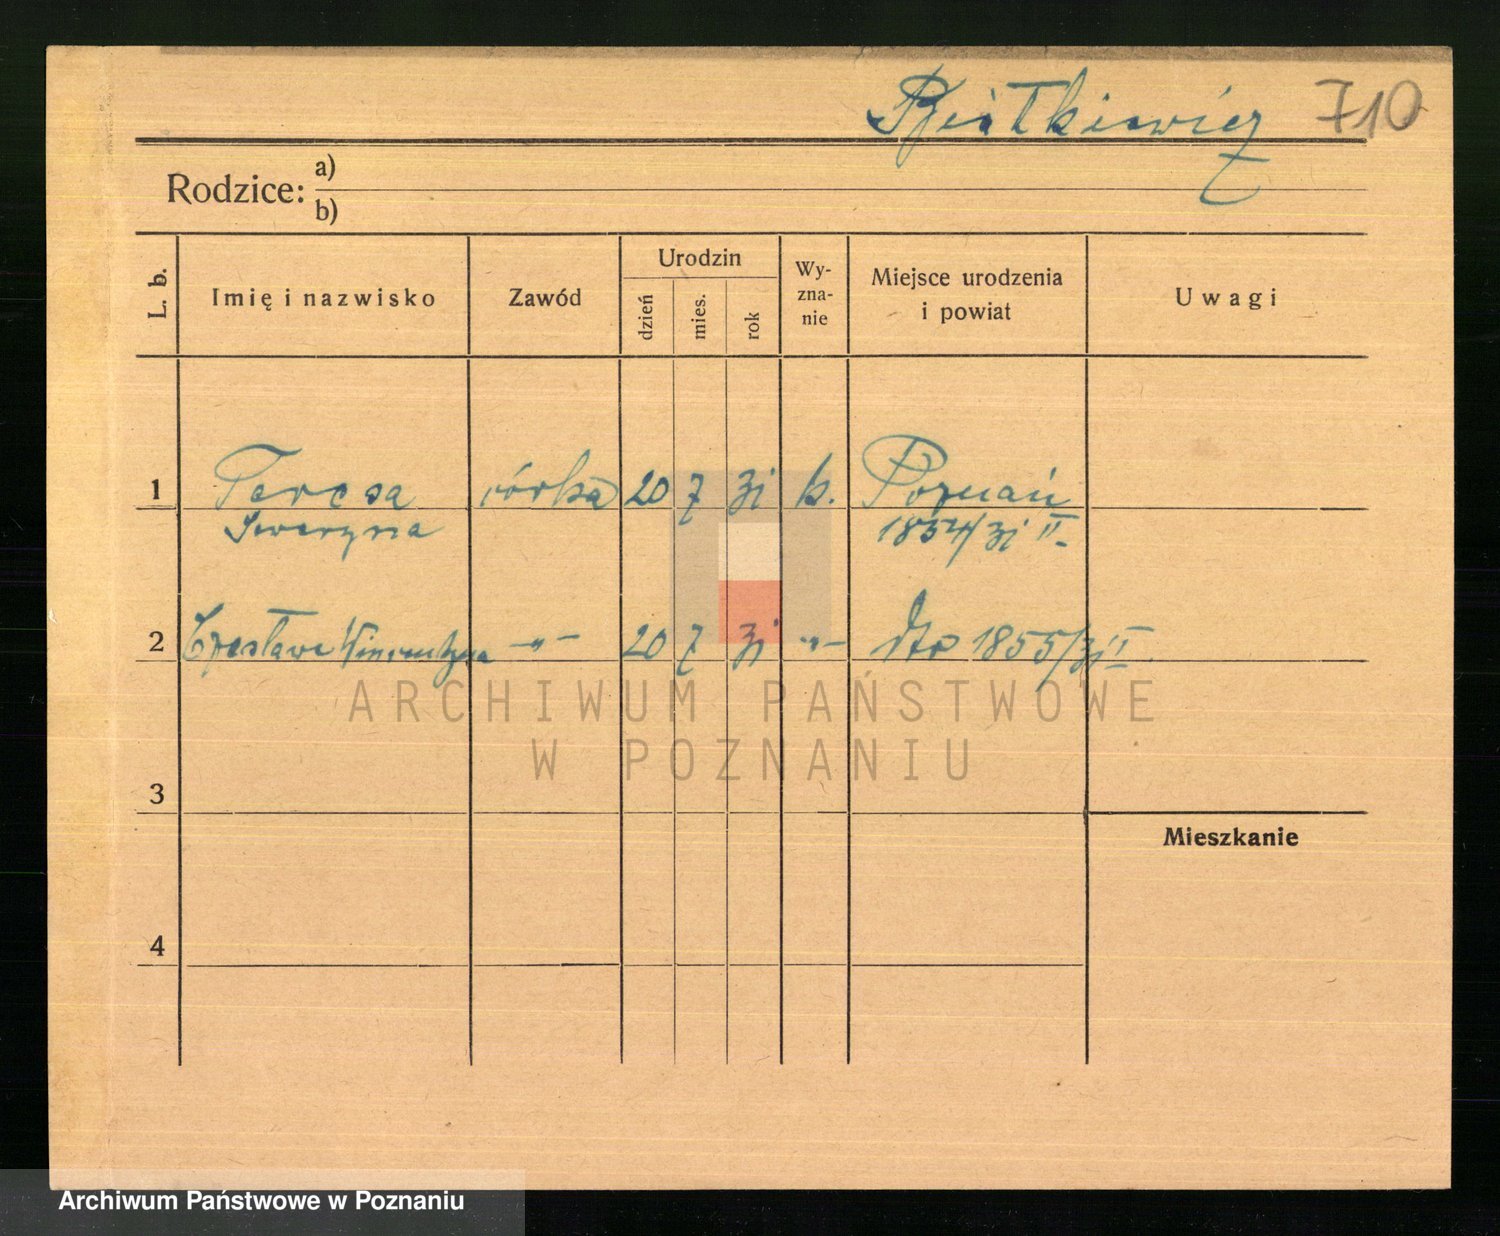 710
Rodzice: a)
b)
L. b. Imię i nazwisko Zawód Urodzin dzień mies. rok Wy-zna-nie Miejsce urodzenia i powiat Uwagi
1 Teresa córka 20 7 31 k. Poznań
Seweryna 1854/31 II
2 Czesława Wincentyna -"- 20 7 31 -"- dto 1855/31 II
ARCHIWUM PAŃSTWOWE
W POZNANIU
3
Mieszkanie
4
Archiwum Państwowe w Poznaniu